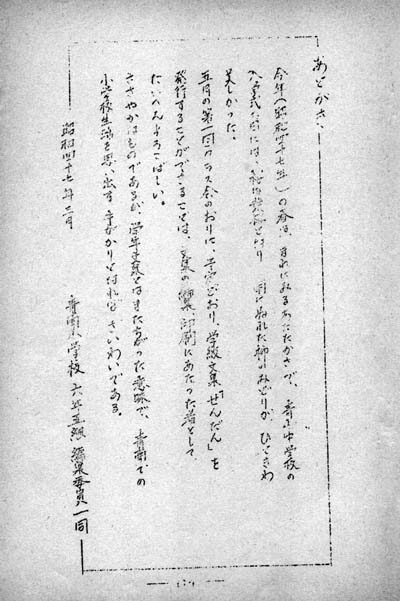 あとがき
今年(昭和四十七年)の春は、まれにみるあたたかさで、中学校の
入学式た日には、雨にぬれた柳のみどりが、ひときわ
美しかった。
五月の第一回クラス会のおりに、予定どおり、学級文集「せんだん」を
発行することができることは、文集の編集、印刷にあたった者として
たいへんよろこばしい。
ささやかなものであるが、学年文集とはまたちがった意味で、青南での
小学校生活を思い出す手がかりとなればさいわいである。
昭和四十七年三月
青南小学校 六年五組 編集委員一同